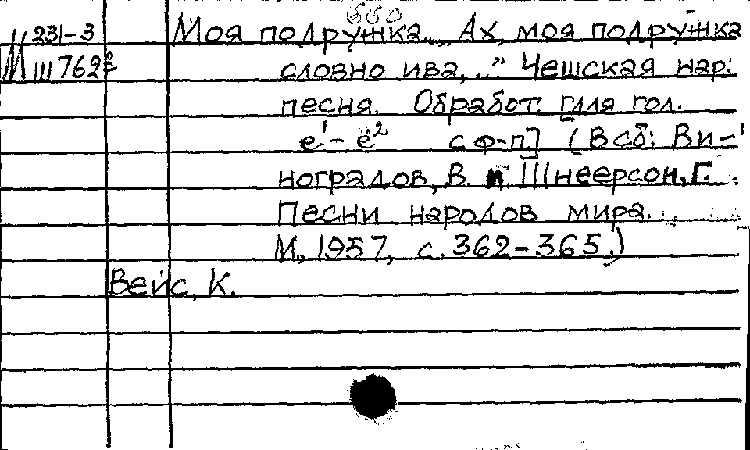 550
231-3
Моя подружка... Ах, моя подружка
М III 762
словно ива,.." Чешская нар.
песня. Обработ. [для гол.
e¹-e² с ф-п] (В сб: Ви-
ноградов, В. и Шнеерсон, Г.
Песни народов мира.
М., 1957, с. 362-365.)
Вейс, К.